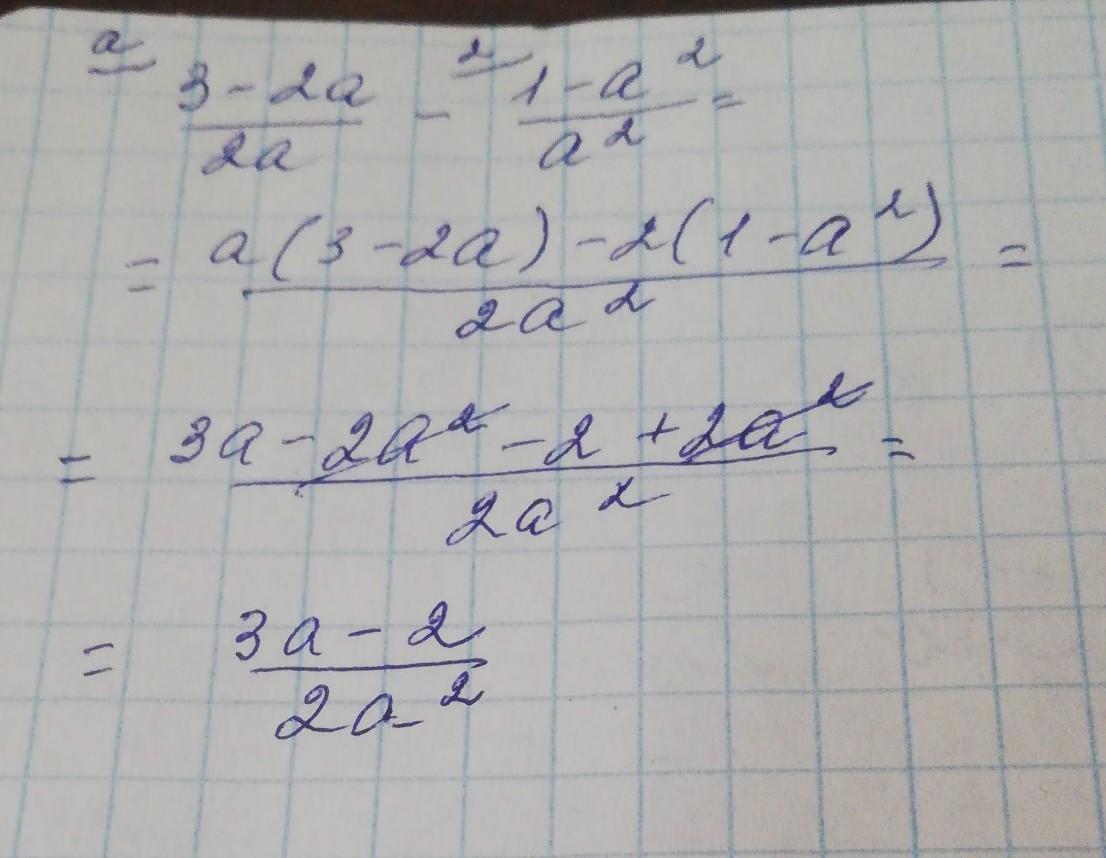 a 3-2a/2a - 2 1-a²/a² =
= a(3-2a)-2(1-a²)/2a² =
= 3a-2a²-2+2a²/2a² =
= 3a-2/2a²